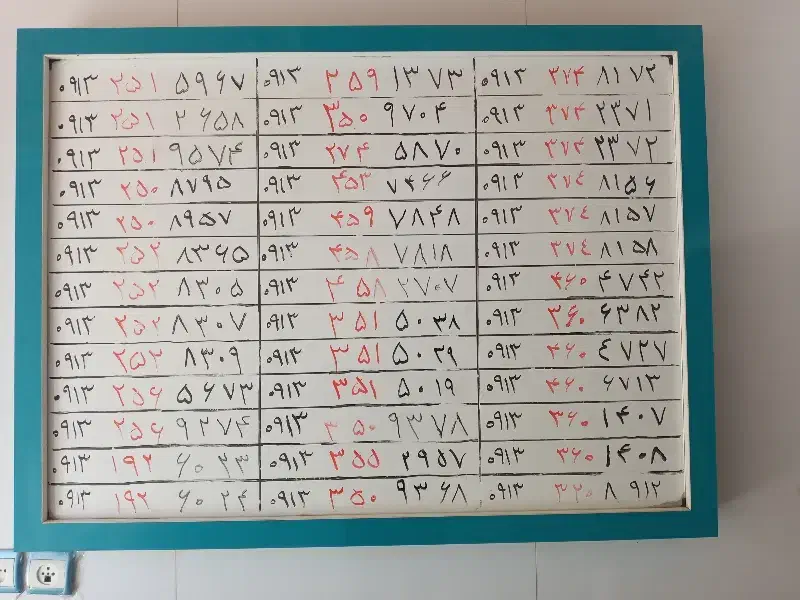 ۰۹۱۳ ۲۵۱ ۵۹۶۷ ۰۹۱۳ ۲۵۹ ۱۳۷۳ ۰۹۱۳ ۳۷۴ ۸۱۷۲
۰۹۱۳ ۲۵۱ ۲۶۵۸ ۰۹۱۳ ۳۵۰ ۹۷۰۴ ۰۹۱۳ ۳۷۴ ۲۳۷۱
۰۹۱۳ ۲۵۱ ۹۵۷۴ ۰۹۱۳ ۲۷۴ ۵۸۷۰ ۰۹۱۳ ۳۷۴ ۲۳۷۲
۰۹۱۳ ۲۵۰ ۸۷۹۵ ۰۹۱۳ ۴۵۳ ۷۴۶۶ ۰۹۱۳ ۳۷۴ ۸۱۵۶
۰۹۱۳ ۲۵۰ ۸۹۵۷ ۰۹۱۳ ۴۵۹ ۷۸۴۸ ۰۹۱۳ ۳۷۴ ۸۱۵۷
۰۹۱۳ ۲۵۲ ۸۳۶۵ ۰۹۱۳ ۴۵۸ ۷۸۱۸ ۰۹۱۳ ۳۷۴ ۸۱۵۸
۰۹۱۳ ۲۵۲ ۸۳۰۵ ۰۹۱۳ ۴۵۸ ۲۷۰۷ ۰۹۱۳ ۳۶۰ ۴۷۴۲
۰۹۱۳ ۲۵۲ ۸۳۰۷ ۰۹۱۳ ۳۵۱ ۵۰۳۸ ۰۹۱۳ ۳۶۰ ۶۳۸۲
۰۹۱۳ ۲۵۲ ۸۳۰۹ ۰۹۱۳ ۳۵۱ ۵۰۲۹ ۰۹۱۳ ۳۶۰ ۴۷۲۷
۰۹۱۳ ۲۵۶ ۵۶۷۳ ۰۹۱۳ ۳۵۱ ۵۰۱۹ ۰۹۱۳ ۳۶۰ ۶۷۱۳
۰۹۱۳ ۲۵۶ ۹۲۷۴ ۰۹۱۳ ۳۵۰ ۹۳۷۸ ۰۹۱۳ ۳۶۰ ۱۴۰۷
۰۹۱۳ ۱۹۲ ۶۰۲۳ ۰۹۱۳ ۳۵۵ ۲۹۵۷ ۰۹۱۳ ۳۶۰ ۱۴۰۸
۰۹۱۳ ۱۹۲ ۶۰۲۴ ۰۹۱۳ ۳۵۰ ۹۳۶۸ ۰۹۱۳ ۳۲۰ ۸۹۱۲